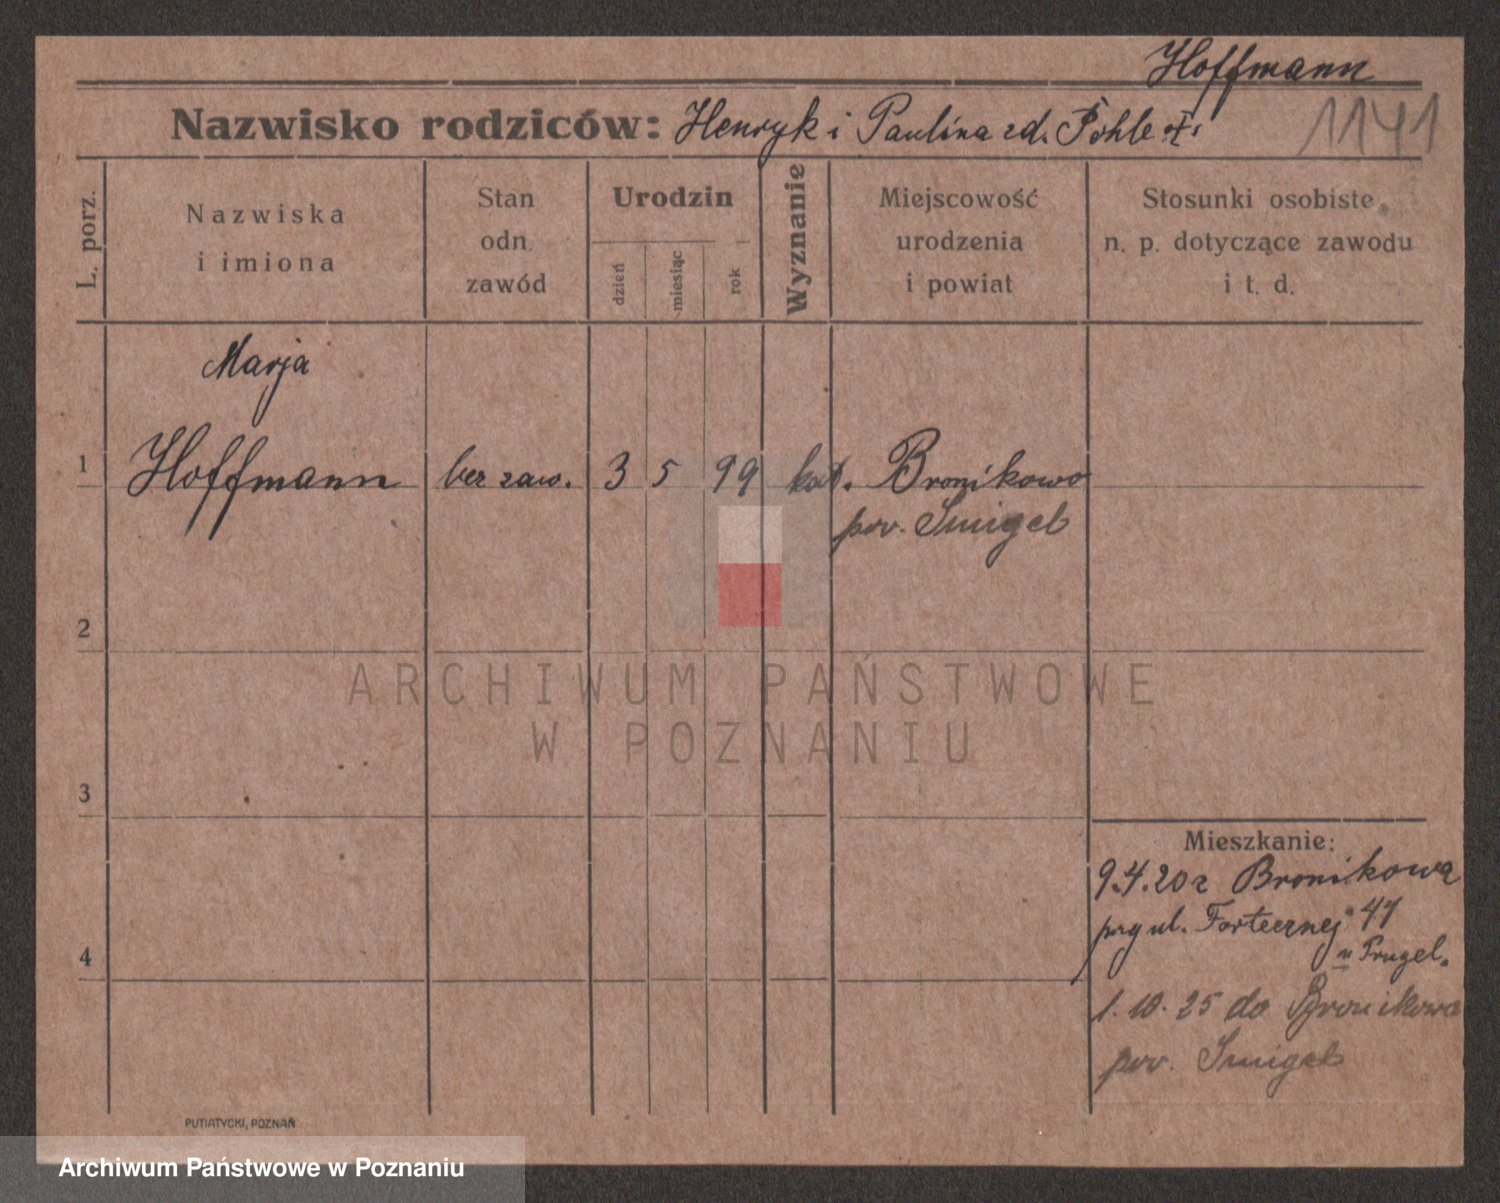 Hoffmann
Nazwisko rodziców: Henryk i Paulina zd. Pohle
1141
L. porz.
Nazwiska
i imiona
Stan
odn.
zawód
Urodzin
dzień
miesiąc
rok
Wyznanie
Miejscowość
urodzenia
i powiat
Stosunki osobiste
n. p. dotyczące zawodu
i t. d.
Marja
1 Hoffmann bez zaw. 3 5 99 kat. Bronikowo
pow. Smigel
2
ARCHIWUM PAŃSTWOWE
W POZNANIU
3
Mieszkanie:
9.4.20 z Bronikowa
przy ul. Fortecznej 47
4
u Prugel.
1.10.25 do Bronikowa
pow. Smigel
PUTIATYCKI, POZNAŃ
Archiwum Państwowe w Poznaniu